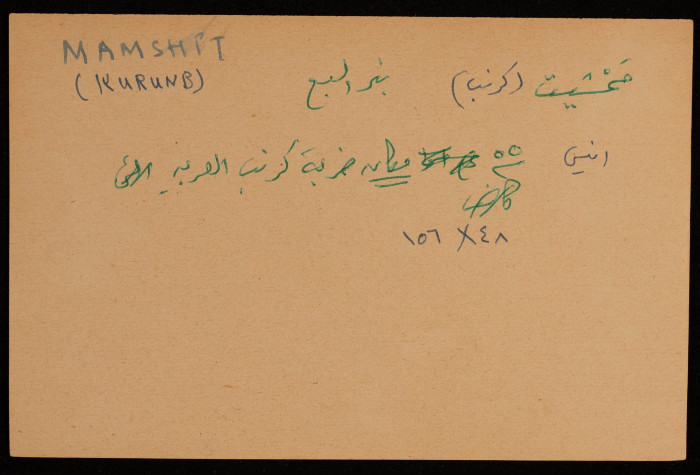 MAMSHIT
(KURUNB)
ممشيت (كرنب) بئر السبع
انيس ٥٥ مكان خربة كرنب العربية
٤٨ X ١٥٦